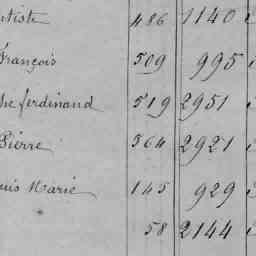 486 1140
François 509 995
ferdinand 519 2951
Pierre 564 2921
Marie 145 929
58 2144